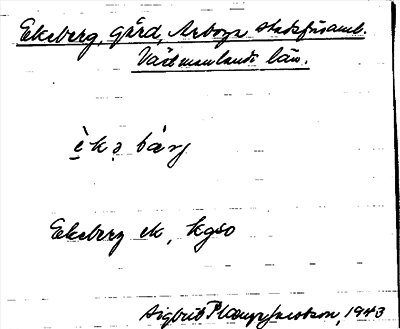 Ekeberg, gård, Arboga stadsförsaml.
Västmanlands län.
èkə bærj
Ekeberg ek, kgso
Sigbrit Plaenge Jacobson, 1943